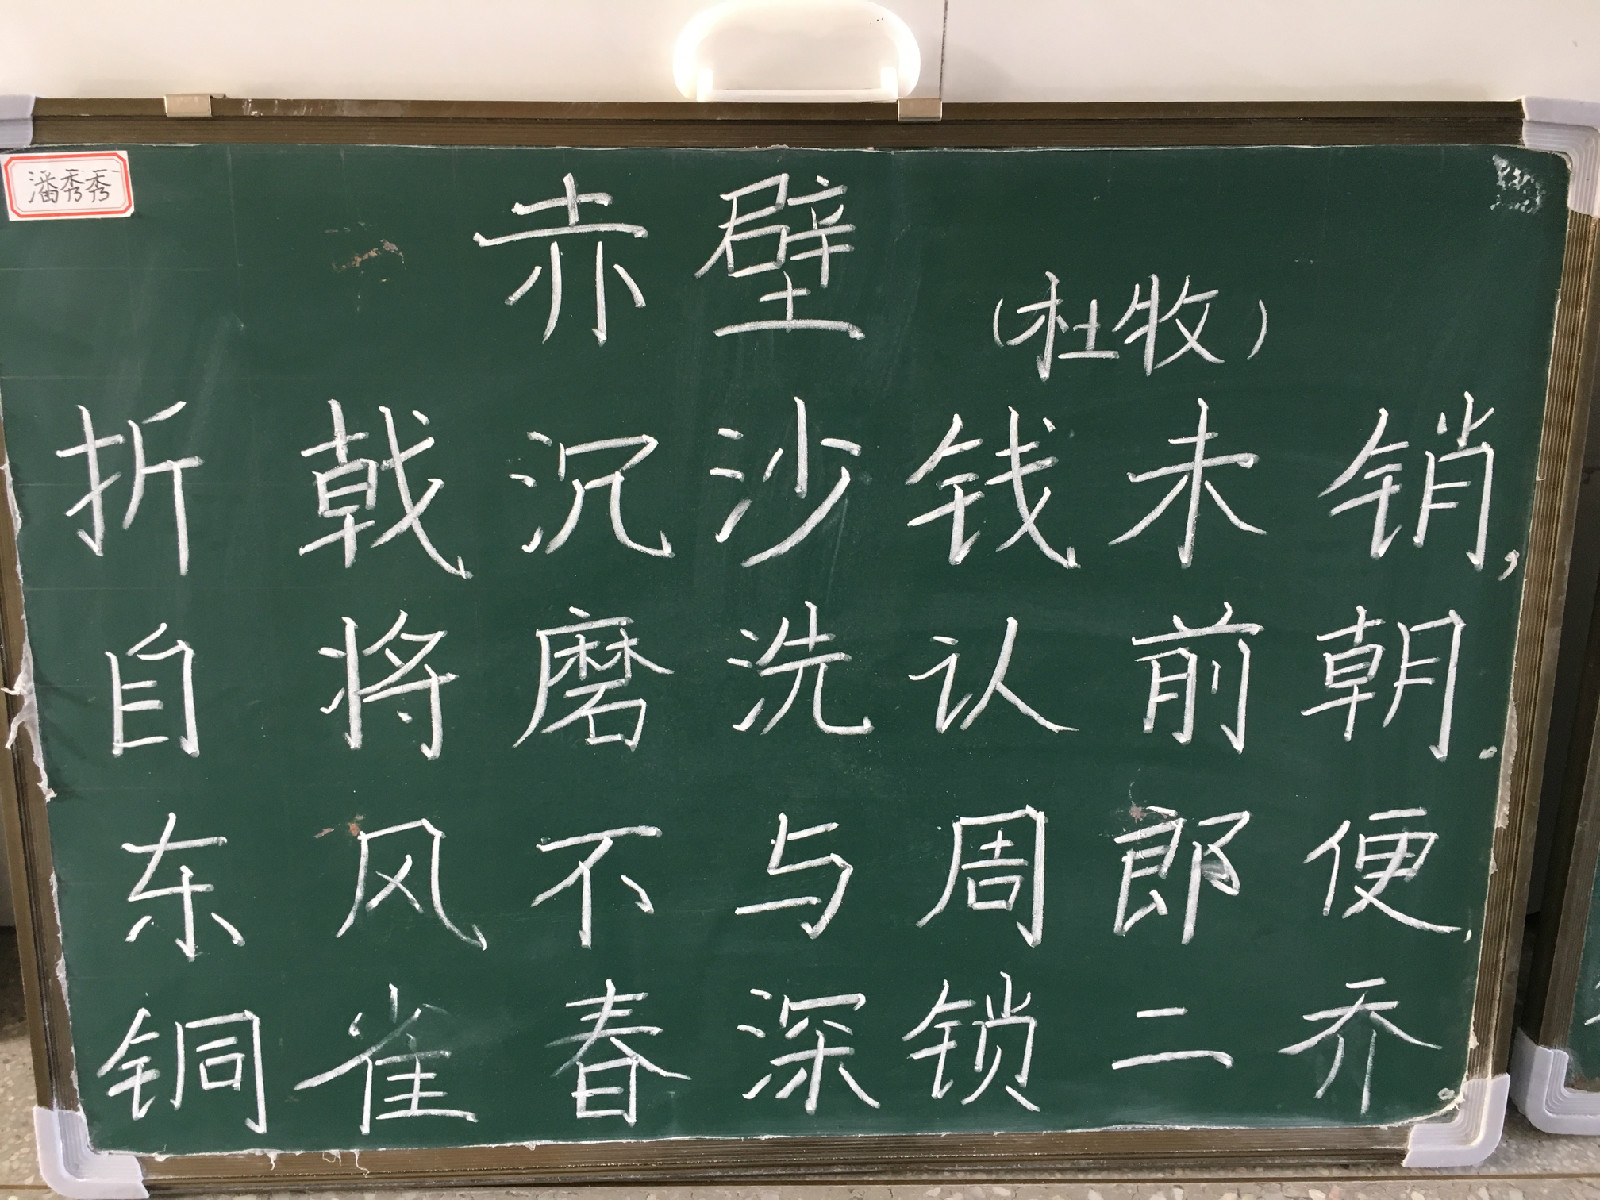 潘秀秀
赤壁
（杜牧）
折戟沉沙钱未销，
自将磨洗认前朝.
东风不与周郎便,
铜雀春深锁二乔。